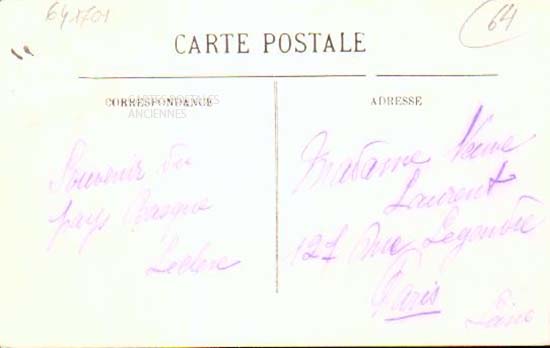 641701
64
CARTE POSTALE
CORRESPONDANCE
CARTES POSTALES
ANCIENNES
ADRESSE
Souvenir du
pays Basque
Leclerc
Madame Veuve
Laurent
127 Rue Legendre
Paris